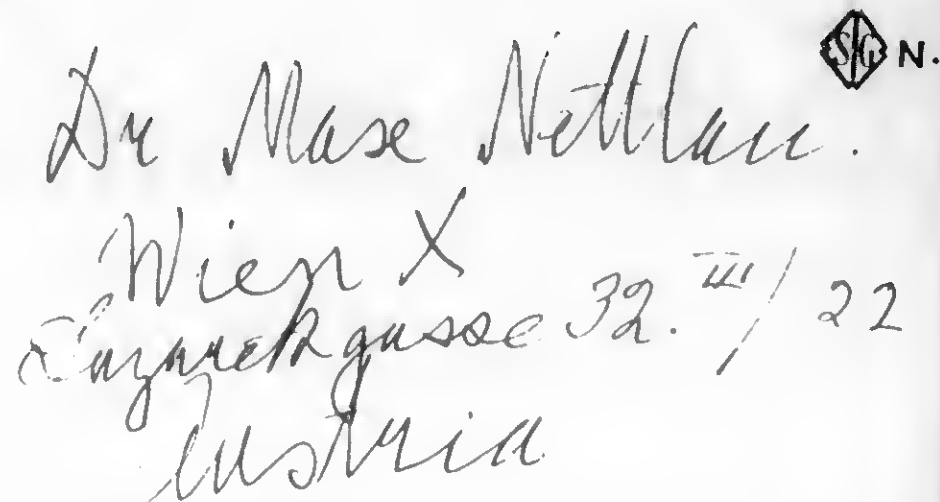 SG N.
Dr Max Nettlau.
Wien X
Lazarekgasse 32. III / 22
Austria